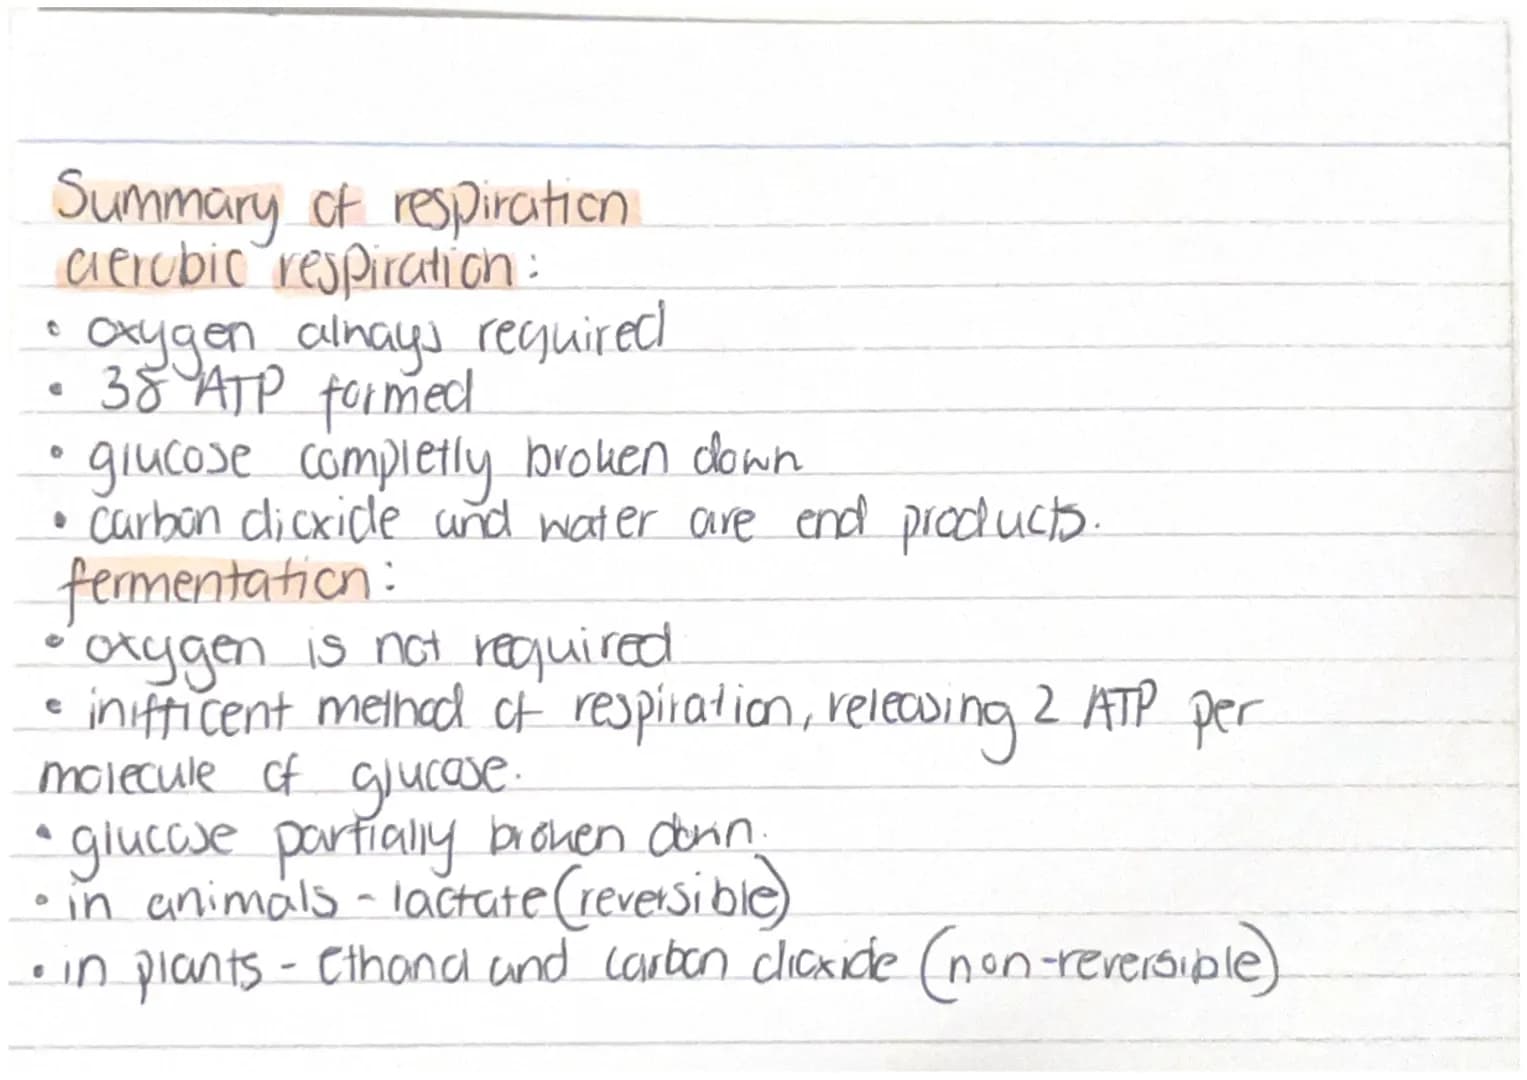 Summary of respiration
aerobic respiration:
• oxygen always required
• 38 ATP formed
• glucose completly broken down
• carbon dioxide and water are end products.
fermentation:
• oxygen is not required
• inifficent method of respiration, releasing 2 ATP per
molecule of glucose.
• glucose partially broken down.
• in animals - lactate (reversible)
• in plants - Ethanol and carbon dioxide (non-reversible)